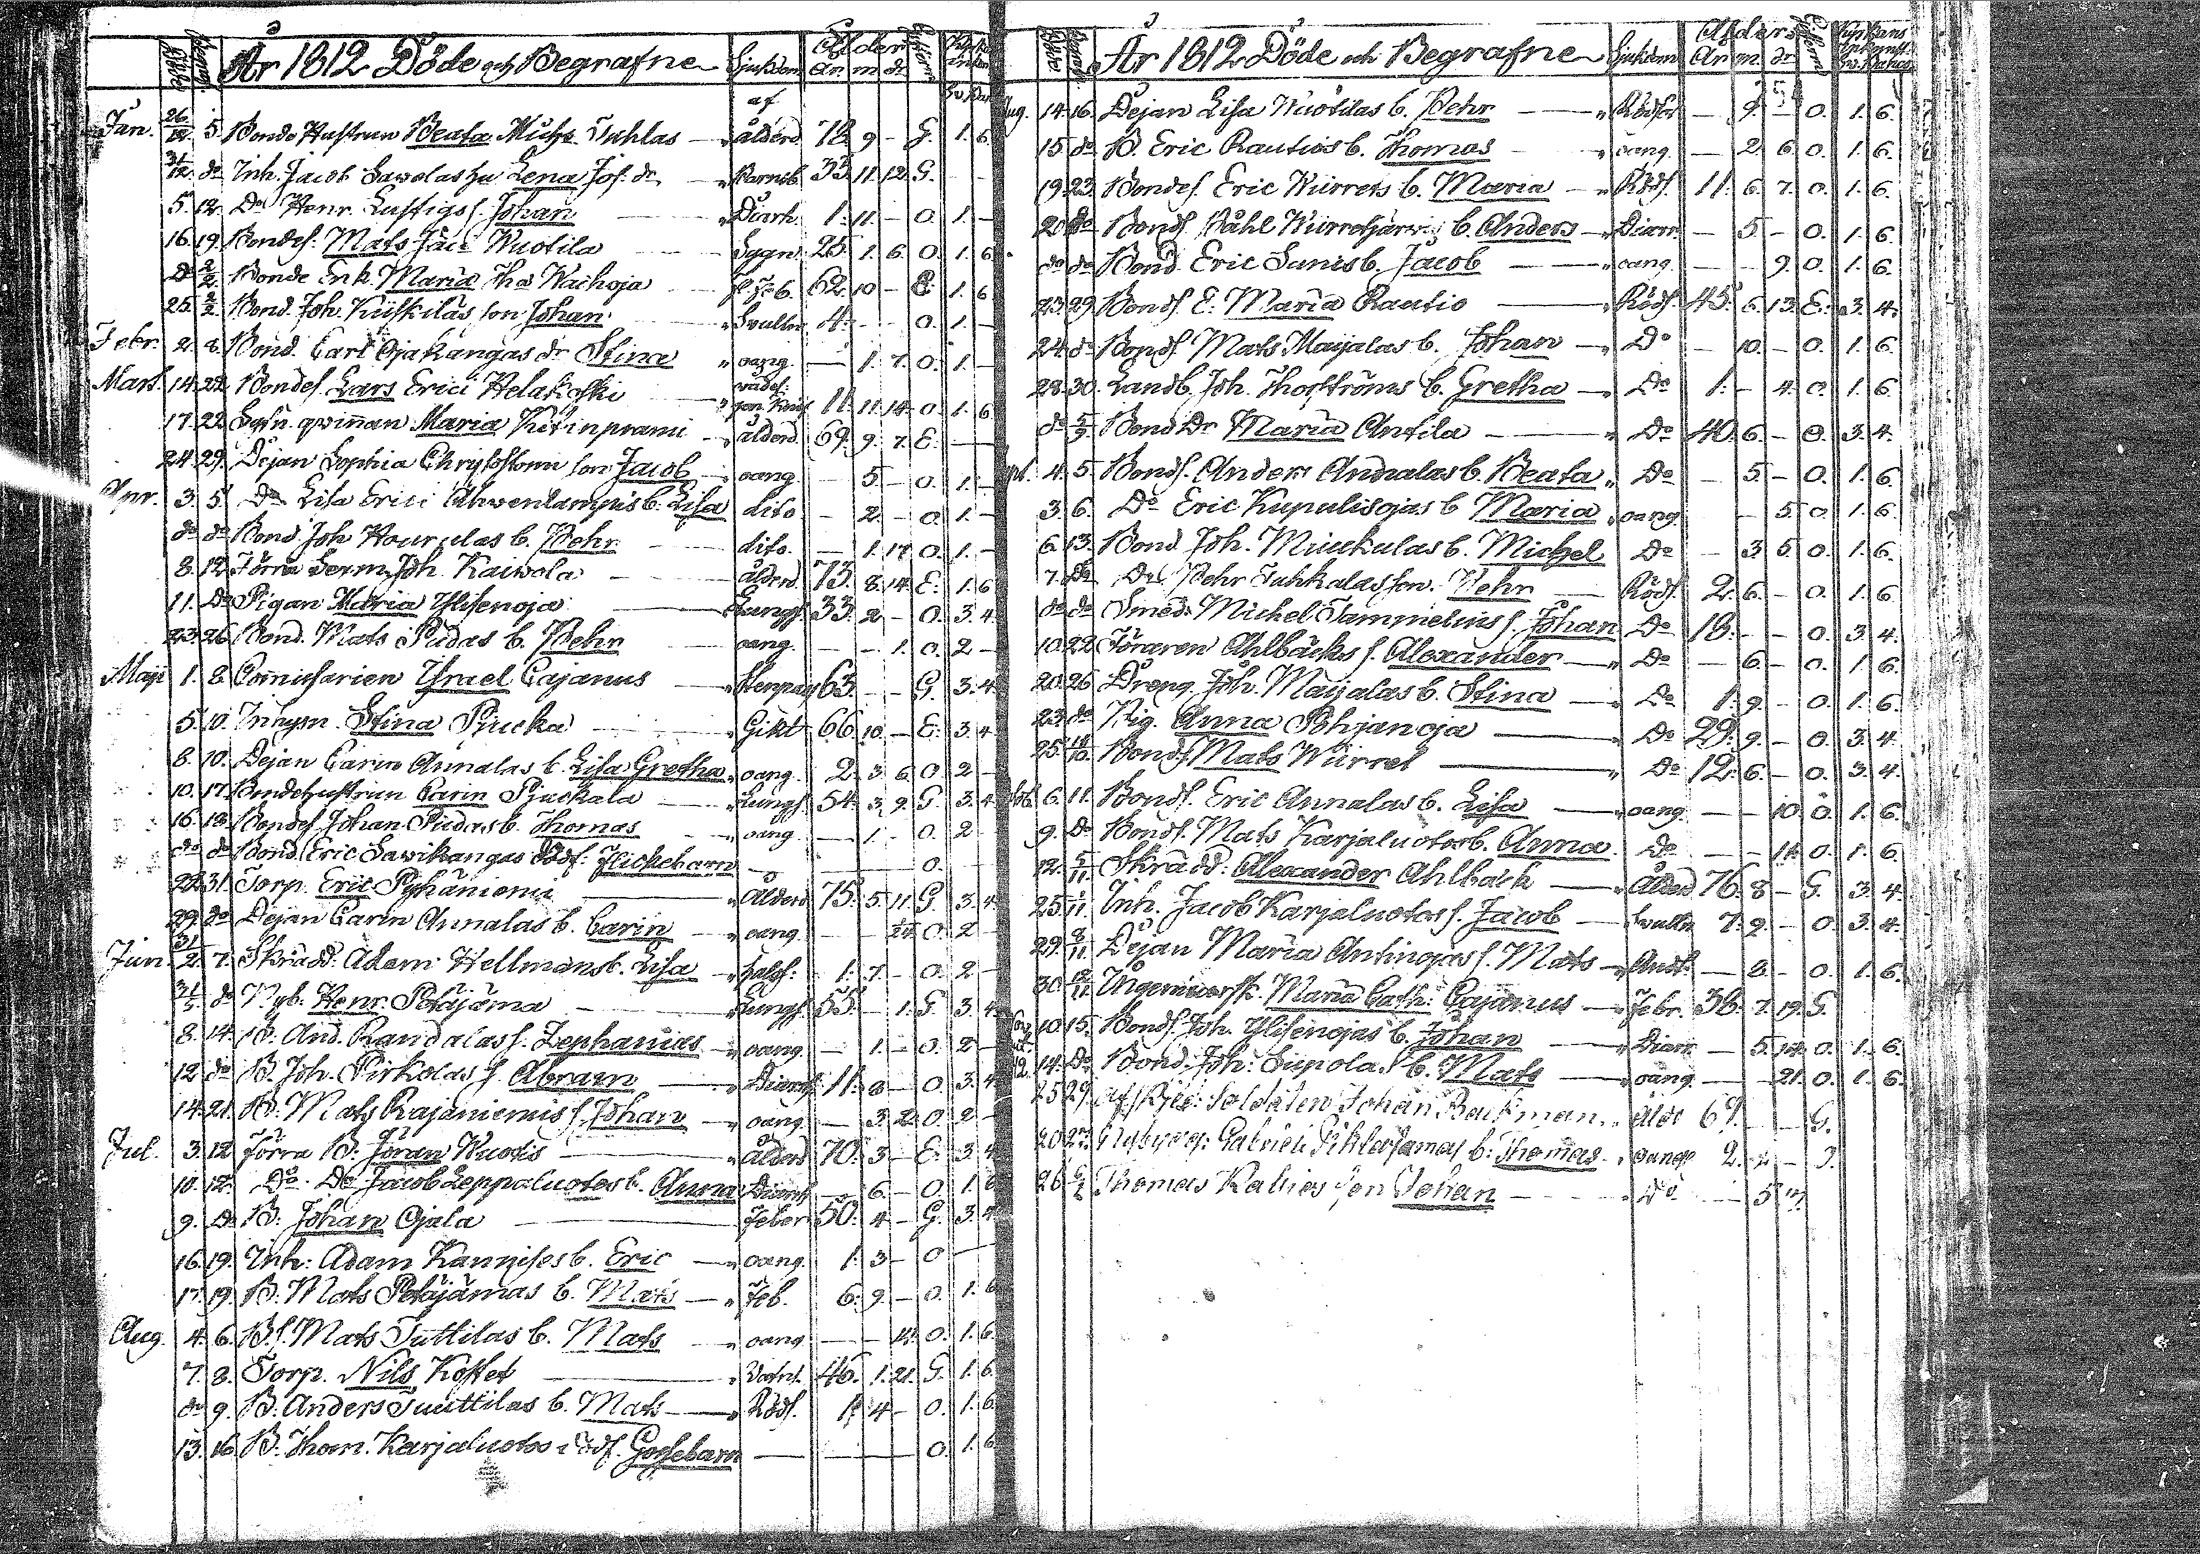 År 1812 Döde och Begrafne Sjukdom Ålder
År m. dr
af
Jan. 26/12 5. Bonde Hustrun Beata Mich Juhlas ålderd 78 9 - G. 1. 6
31/12 do Inh. Jacob Sawolas hu Lena Jos. dr Barnsb. 33 11 12 G. - -
5. 12. Do Henr. Lustigs s. Johan Diarh. 1. 11 - O. 1. -
16. 19. Bondes. Mats Jac Wuotila 25 1. 6. O. 1. 6
Do 2/2 Bonde Enk. Maria 62 10 - E. 1. 6
25. 2/2 Bond. Joh. Kiiskiläs son Johan Svulln. 4. - - O. 1. -
Febr. 2. 8. Bond. Carl Ojakangas dr Stina oang. - 1. 7. O. 1. -
Mart. 14. 22. Bondes. Lars Erici Helakoski 11 11 14 O. 1. 6
17. 22. qvinnan Maria ålderd 69 9 7. E. - -
24. 29. Dejan Sophia Chrysostom son Jacob oang. - 5 - O. 1. -
Apr. 3. 5. Do Lisa Erici Ahwenlampis b. Lisa dito - 2. - O. 1. -
do do Bond Joh b. Pehr dito. - 1. 17 O. 1. -
8. 12. Förra Joh. Kaiwola ålderd 73 8 14 E. 1. 6
11. Do Pigan Maria Ylisenoja Lungs. 33 2 - O. 3. 4
23. 26. Bond. Mats Pudas b. Pehr oang. - - 1. O. 2 -
Maji 1. 8. Commissarien Israel Cajanus Stenpass 63. - - G. 3. 4
5. 10. Inhysn Stina Pjucka Gikt 66 10 - E. 3. 4
8. 10. Dejan Carin Annalas b. Lisa Gretha oang. 2. 3 6 O. 2 -
10. 17. Bondehustrun Carin Pjuckala Lungs. 54. 3. 9. G. 3. 4
16. 18. Bondes. Johan Pudas b. Thomas oang - 1. - O. 2
do do Bond. Eric Sawikangas dödf. Flickebarn - - - O. -
22. 31. Torp. Eric Pyhäniemi Ålderd 75 5 11 G. 3. 4
29. do Dejan Carin Annalas b. Carin oang. - - O. 2 -
Jun. 2. 7. Skrädd. Adam Hellmans b. Lisa halss. 1. 7. - O. 2 -
31/5 do Nyb. Henr Petäjäma Lungs. 55 - 1. G. 3. 4
8. 14. B. And. Randalas s. Zephanias oang. - 1. - O. 2 -
12 do B. Joh. Pirkolas s. Abram Diarrh 11. 8 - O. 3. 4
14. 21. B. Mats Rajaniemis s. Johan oang. - 3 2 O. 2 -
Jul. 3. 12. Förra B. Jöran Wuotis ålderd 70. 3 - E. 3. 4
10. 12. Do Do Jacob Leppaluotos b. Anna Diarrh - 6. - O. 1. 6
9. Do B. Johan Ojala Feber 50. 4 - G. 3. 4
16. 19. Inh. Adam Kannises b. Eric oang. 1. 3 - O
17. 19. B. Mats Petäjämas b. Mats Feb. 6. 9 - O. 1. 6
Aug. 4. 6. B.s. Mats Tuttilas b. Mats oang. - - 14. O. 1. 6.
7. 8. Torp. Nils Koffet 46. 1. 21. G. 1. 6.
do 9. B. Anders Tuuttilas b. Mats Röds. 1. 4 - O. 1. 6
13. 16. B. Thom. Karjaluotos dödf. Gossebarn - - - O. 1. 6
År 1812 Döde och Begrafne Sjukdom Ålders
År m. dr
Aug. 14. 16. Dejan Lisa Wuotilas b. Pehr Rödsot - 9. - O. 1. 6.
15 do B. Eric Rautios b. Thomas oang. - 2. 6 O. 1. 6.
19. 23. Bondes. Eric Wiirrets b. Maria Röds. 11. 6. 7. O. 1. 6.
20. do Bonds. Påhl b. Anders Diarr. - 5 - O. 1. 6
do do Bond. Eric Sunis b. Jacob oang. - - 9. O. 1. 6.
23. 29. Bonds. E. Maria Rautio Röds. 45. 6. 13. E. 3. 4.
24. do Bonds. Mats Maijalas b. Johan Do - 10. - O. 1. 6.
28. 30. Landb. Joh. Thorströms b. Gretha Do 1. - 4. O. 1. 6
do 5/9 Bond Dr Maria Antila Do 40. 6. - O. 3. 4.
4. 5. Bonds. Anders Andialas b. Beata Do - 5. - O. 1. 6.
3. 6. Do Eric Kupulisojas b Maria oang. - 5 O. 1. 6.
6. 13. Bond Joh. Miukulas b. Michel Do - 3 5. O. 1. 6.
7. Do Do Pehr Juhkalas son. Pehr Röds. 2. 6. - O. 1. 6
do do Smed. Michel Tammelins s. Johan Do 18. - - O. 3. 4.
10. 22. Föraren Ahlbäcks s. Alexander Do - 6. - O. 1. 6.
20. 26. Dreng. Joh. Maijalas b. Stina Do 1. 9. - O. 1. 6.
23. do Pig. Anna Pohjanoja Do 29. 9. - O. 3. 4
25. Bonds. Mats Wiirret Do 12. 6. - O. 3. 4.
6. 11. Bonds. Eric Annalas b. Lisa oang. - - 10. O. 1. 6.
9. Do Bonds. Mats Karjaluotos b. Anna Do - - 14. O. 1. 6.
12. 5/11 Skrädd. Alexander Ahlbäck Ålderd 76. 8 - G. 3. 4.
25. 1/11 Inh. Jacob Karjaluotos s. Jacob Svulln 7. 9. - O. 3. 4.
29. 8/11 Dejan Maria Antinojas s. Mats Andt. - 8. - O. 1. 6.
30. Maria Cath. Cajanus Febr. 38. 7. 19. G.
10. 15. Bonds. Joh. Ylisenojas b. Johan Diarr - 5. 14. O. 1. 6.
14. Do Bond. Joh. Supola b. Mats oang. - - 21. O. 1. 6.
25 29. Soldaten Johan Backman ålde 69. - - G.
20 27. Gabriel b. Thomas oang. 2.
26 Thomas Rautios son Johan Do - 5